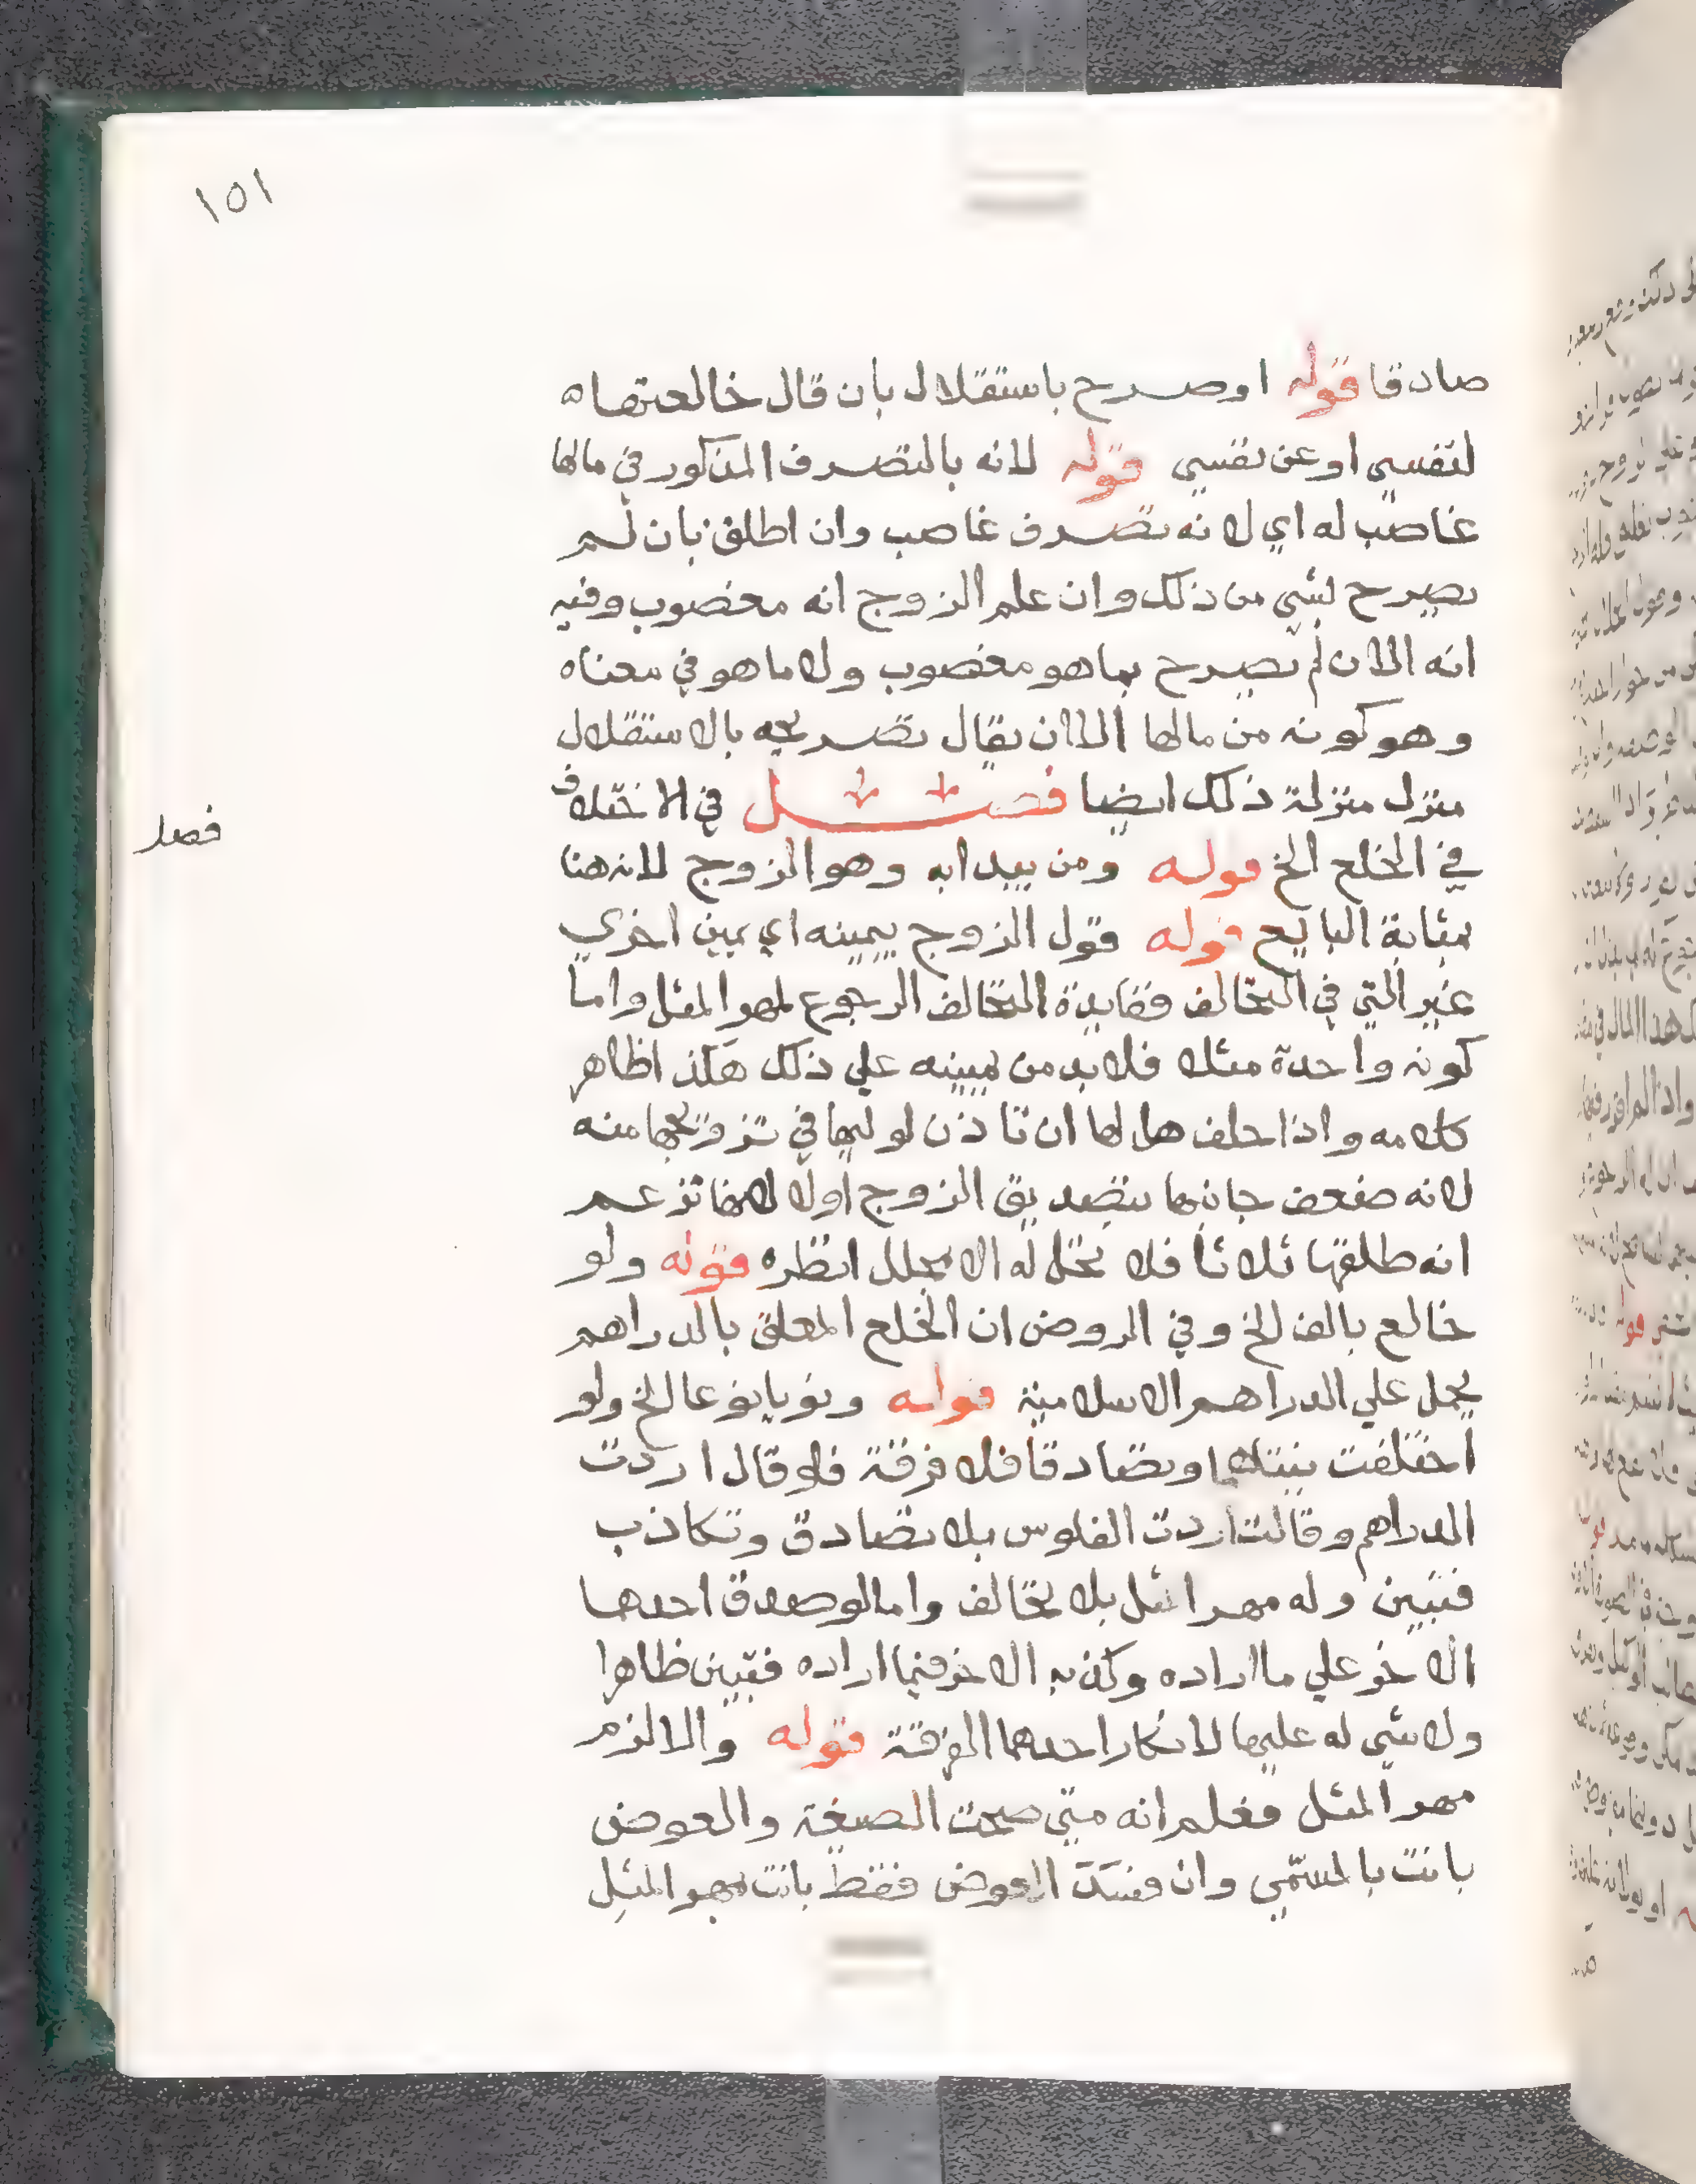 ١٥١
صادقا قوله او صرح باستقلال بان قال خالعتها
لنفسي او عن نفسي قوله لانه بالتصرف المذكور في مالها
غاصب له اي لانه تصرف غاصب وان اطلق بان لم
يصرح بشي من ذلك وان علم الزوج انه مغصوب وفيه
انه الان لم يصرح بما هو مغصوب ولا ما هو في معناه
وهو كونه من مالها الا ان يقال تصريحه بالاستقلال
منزل منزلة ذلك ايضا فصل في الاختلاف
فصل
في الخلع الخ قوله ومن يبدا به وهو الزوج لانه هنا
بمثابة البايع قوله قول الزوج بيمينه اي يمين اخري
غير التي في التخالف ففايدة التخالف الرجوع لمهر المثل واما
كونه واحدة مثلا فلا بد من يمينه علي ذلك هكذا ظاهر
كلامه واذا حلف هل لها ان تاذن لوليها في تزويجها منه
لانه ضعف جانبها بتصديق الزوج اولا لانها تزعم
انه طلقها ثلاثا فلا تحل له الا بمحلل انظره قوله ولو
خالع بالف الخ وفي الروض ان الخلع المعلق بالدراهم
يحمل علي الدراهم الاسلامية قوله ونويا نوعا الخ ولو
اختلفت نيتاهما وتصادقا فلا فرقة فلو قال اردت
الدراهم وقالت اردت الفلوس بلا تصادق وتكاذب
فتبين وله مهر المثل بلا تخالف واما لو صدق احدهما
الاخر علي ما اراده وكذبه الاخر فيما اراده فتبين ظاهرا
ولا شي له عليها لانكار احدهما الفرقة قوله والا لزم
مهر المثل فعلم انه متي صحت الصيغة والعوض
بانت بالمسمي وان فسد العوض فقط بانت بمهر المثل